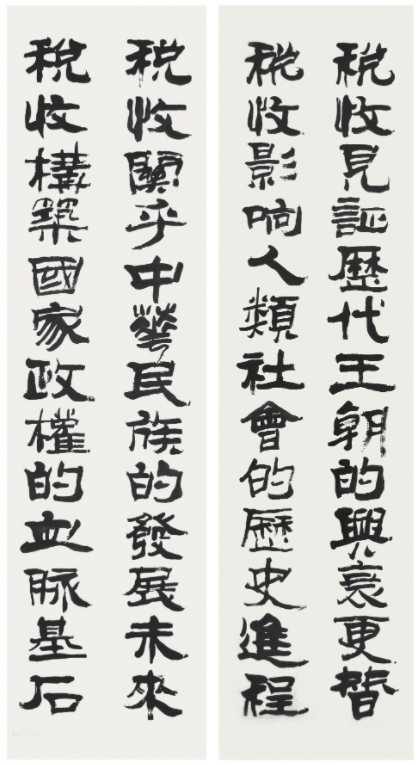 税收見証歷代王朝的興衰更替
税收影响人類社會的歷史進程
税收關乎中華民族的發展未來
税收構築國家政權的血脉基石